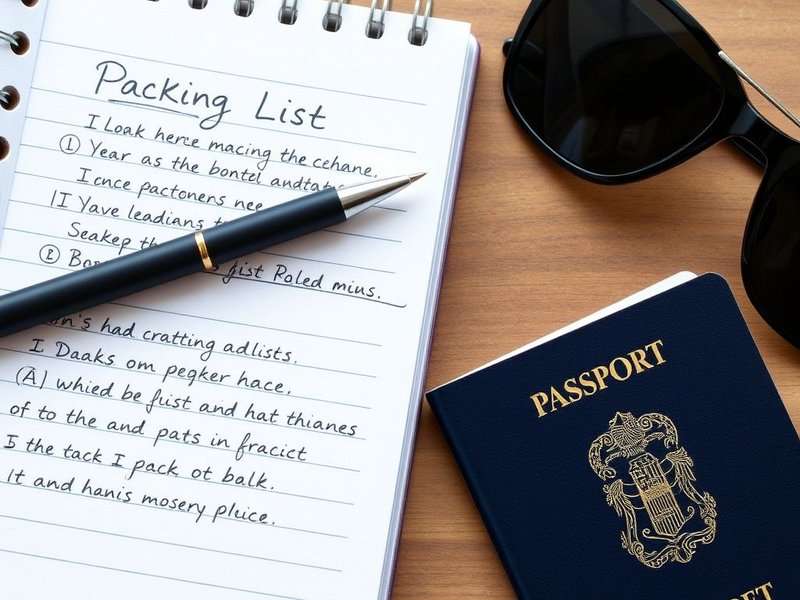 Packing List
I Loak herce macing the cehane.
Ⓘ Year as the bontel
I cnce pactoners nee
II Yave leadians
Seakep
gist Roled mius.
had cratting adlists.
I Daaks om pegker hace,
(A) whied be fuist and hat thianes
of to the and pats in fracict
5 the tack I pack ot balk.
It and hanis mosery pluice.
PASSPORT